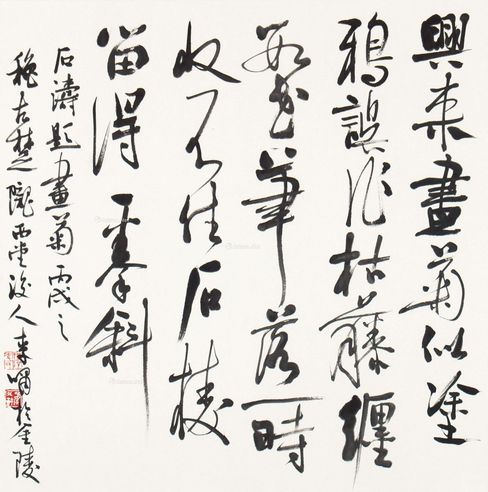 興来畫菊似塗
鴉誤作枯藤纏
數花筆落一時
收不住石棱
留得一拳斜
石濤題畫菊丙戌之
穐古楚隴西堂後人来於金陵